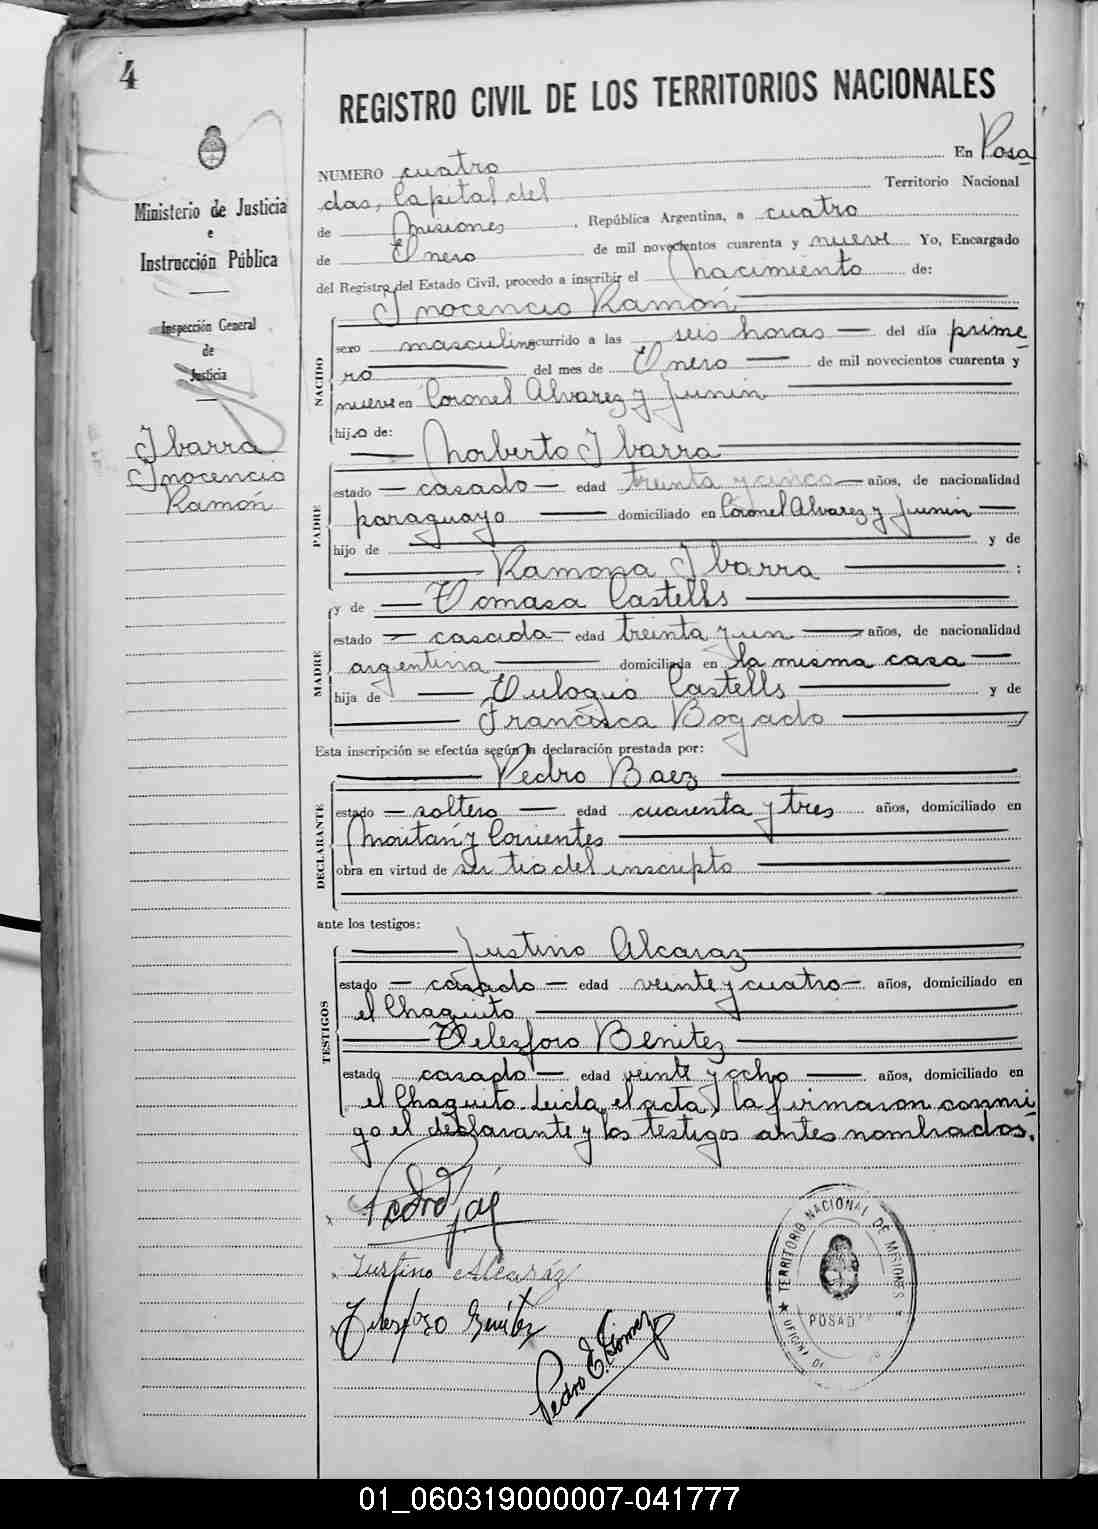 4
REGISTRO CIVIL DE LOS TERRITORIOS NACIONALES
Ministerio de Justicia
e
Instrucción Pública
Inspección General
de
Justicia
Ibarra
Inocencio
Ramón
NUMERO cuatro En Posa
das, Capital del Territorio Nacional
de Misiones, República Argentina, a cuatro
de Enero de mil novecientos cuarenta y nueve Yo, Encargado
del Registro del Estado Civil, procedo a inscribir el nacimiento de:
Inocencio Ramón
NACIDO
sexo masculino ocurrido a las seis horas — del día prime
ro del mes de Enero — de mil novecientos cuarenta y
nueve en Coronel Alvarez y Junin
hijo de:
Norberto Ibarra
PADRE
estado — casado — edad treinta y cinco — años, de nacionalidad
paraguayo — domiciliado en Coronel Alvarez y Junin —
hijo de y de
Ramona Ibarra ;
y de — Tomasa Castells
MADRE
estado — casada — edad treinta y un — años, de nacionalidad
argentina — domiciliada en la misma casa —
hija de — Eulogio Castells — y de
Francisca Bogado
Esta inscripción se efectúa según la declaración prestada por:
Pedro Baez
DECLARANTE
estado — soltero — edad cuarenta y tres años, domiciliado en
y Corrientes
obra en virtud de ser tio del inscripto
ante los testigos:
Justino Alcaraz
TESTIGOS
estado — casado — edad veinte y cuatro — años, domiciliado en
el Chaquito
Telesforo Benitez
estado casado — edad veinte y ocho — años, domiciliado en
el Chaquito. Leida el acta, la firmaron conmi
go el declarante y los testigos antes nombrados.
Justino Alcaráz
Telesforo Benítez
Pedro E. Gómez
TERRITORIO NACIONAL DE MISIONES
POSADAS
01_060319000007-041777